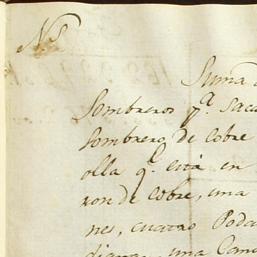 Nº
Suma
Sombreros q.e saca
Sombrero de Cobre
olla q.e està en
ron de Cobre, una
nes, cuatro Poda
una